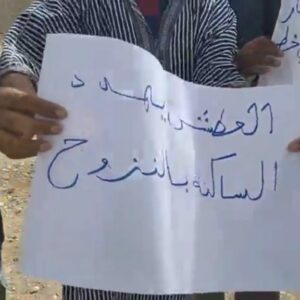 العطش يهدد
الساكنة بالنزوح